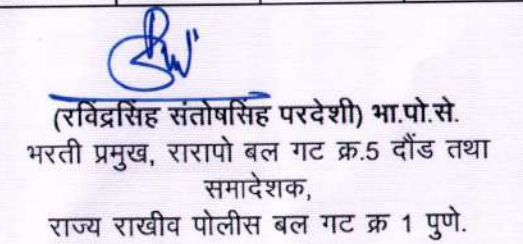 (रविद्रसिंह संतोषसिंह परदेशी) भा.पो.से.
भरती प्रमुख, रारापो बल गट क्र.5 दौंड तथा
समादेशक,
राज्य राखीव पोलीस बल गट क्र 1 पुणे.